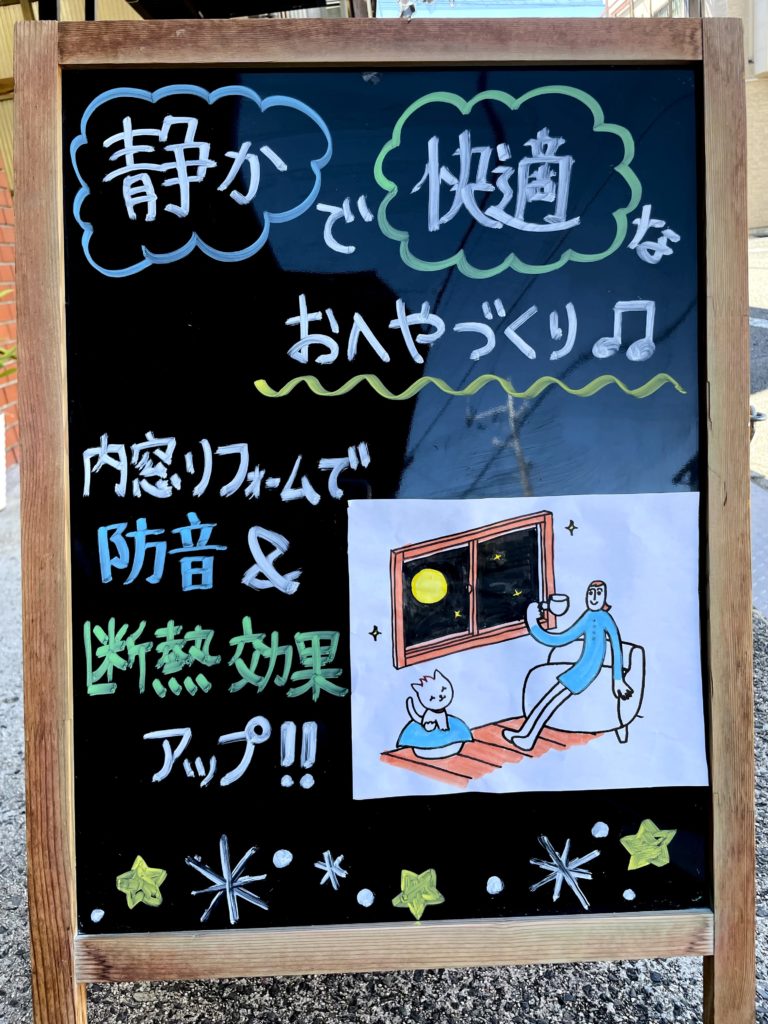 静かで快適な
おへやづくり♫
内窓リフォームで
防音&
断熱効果
アップ!!